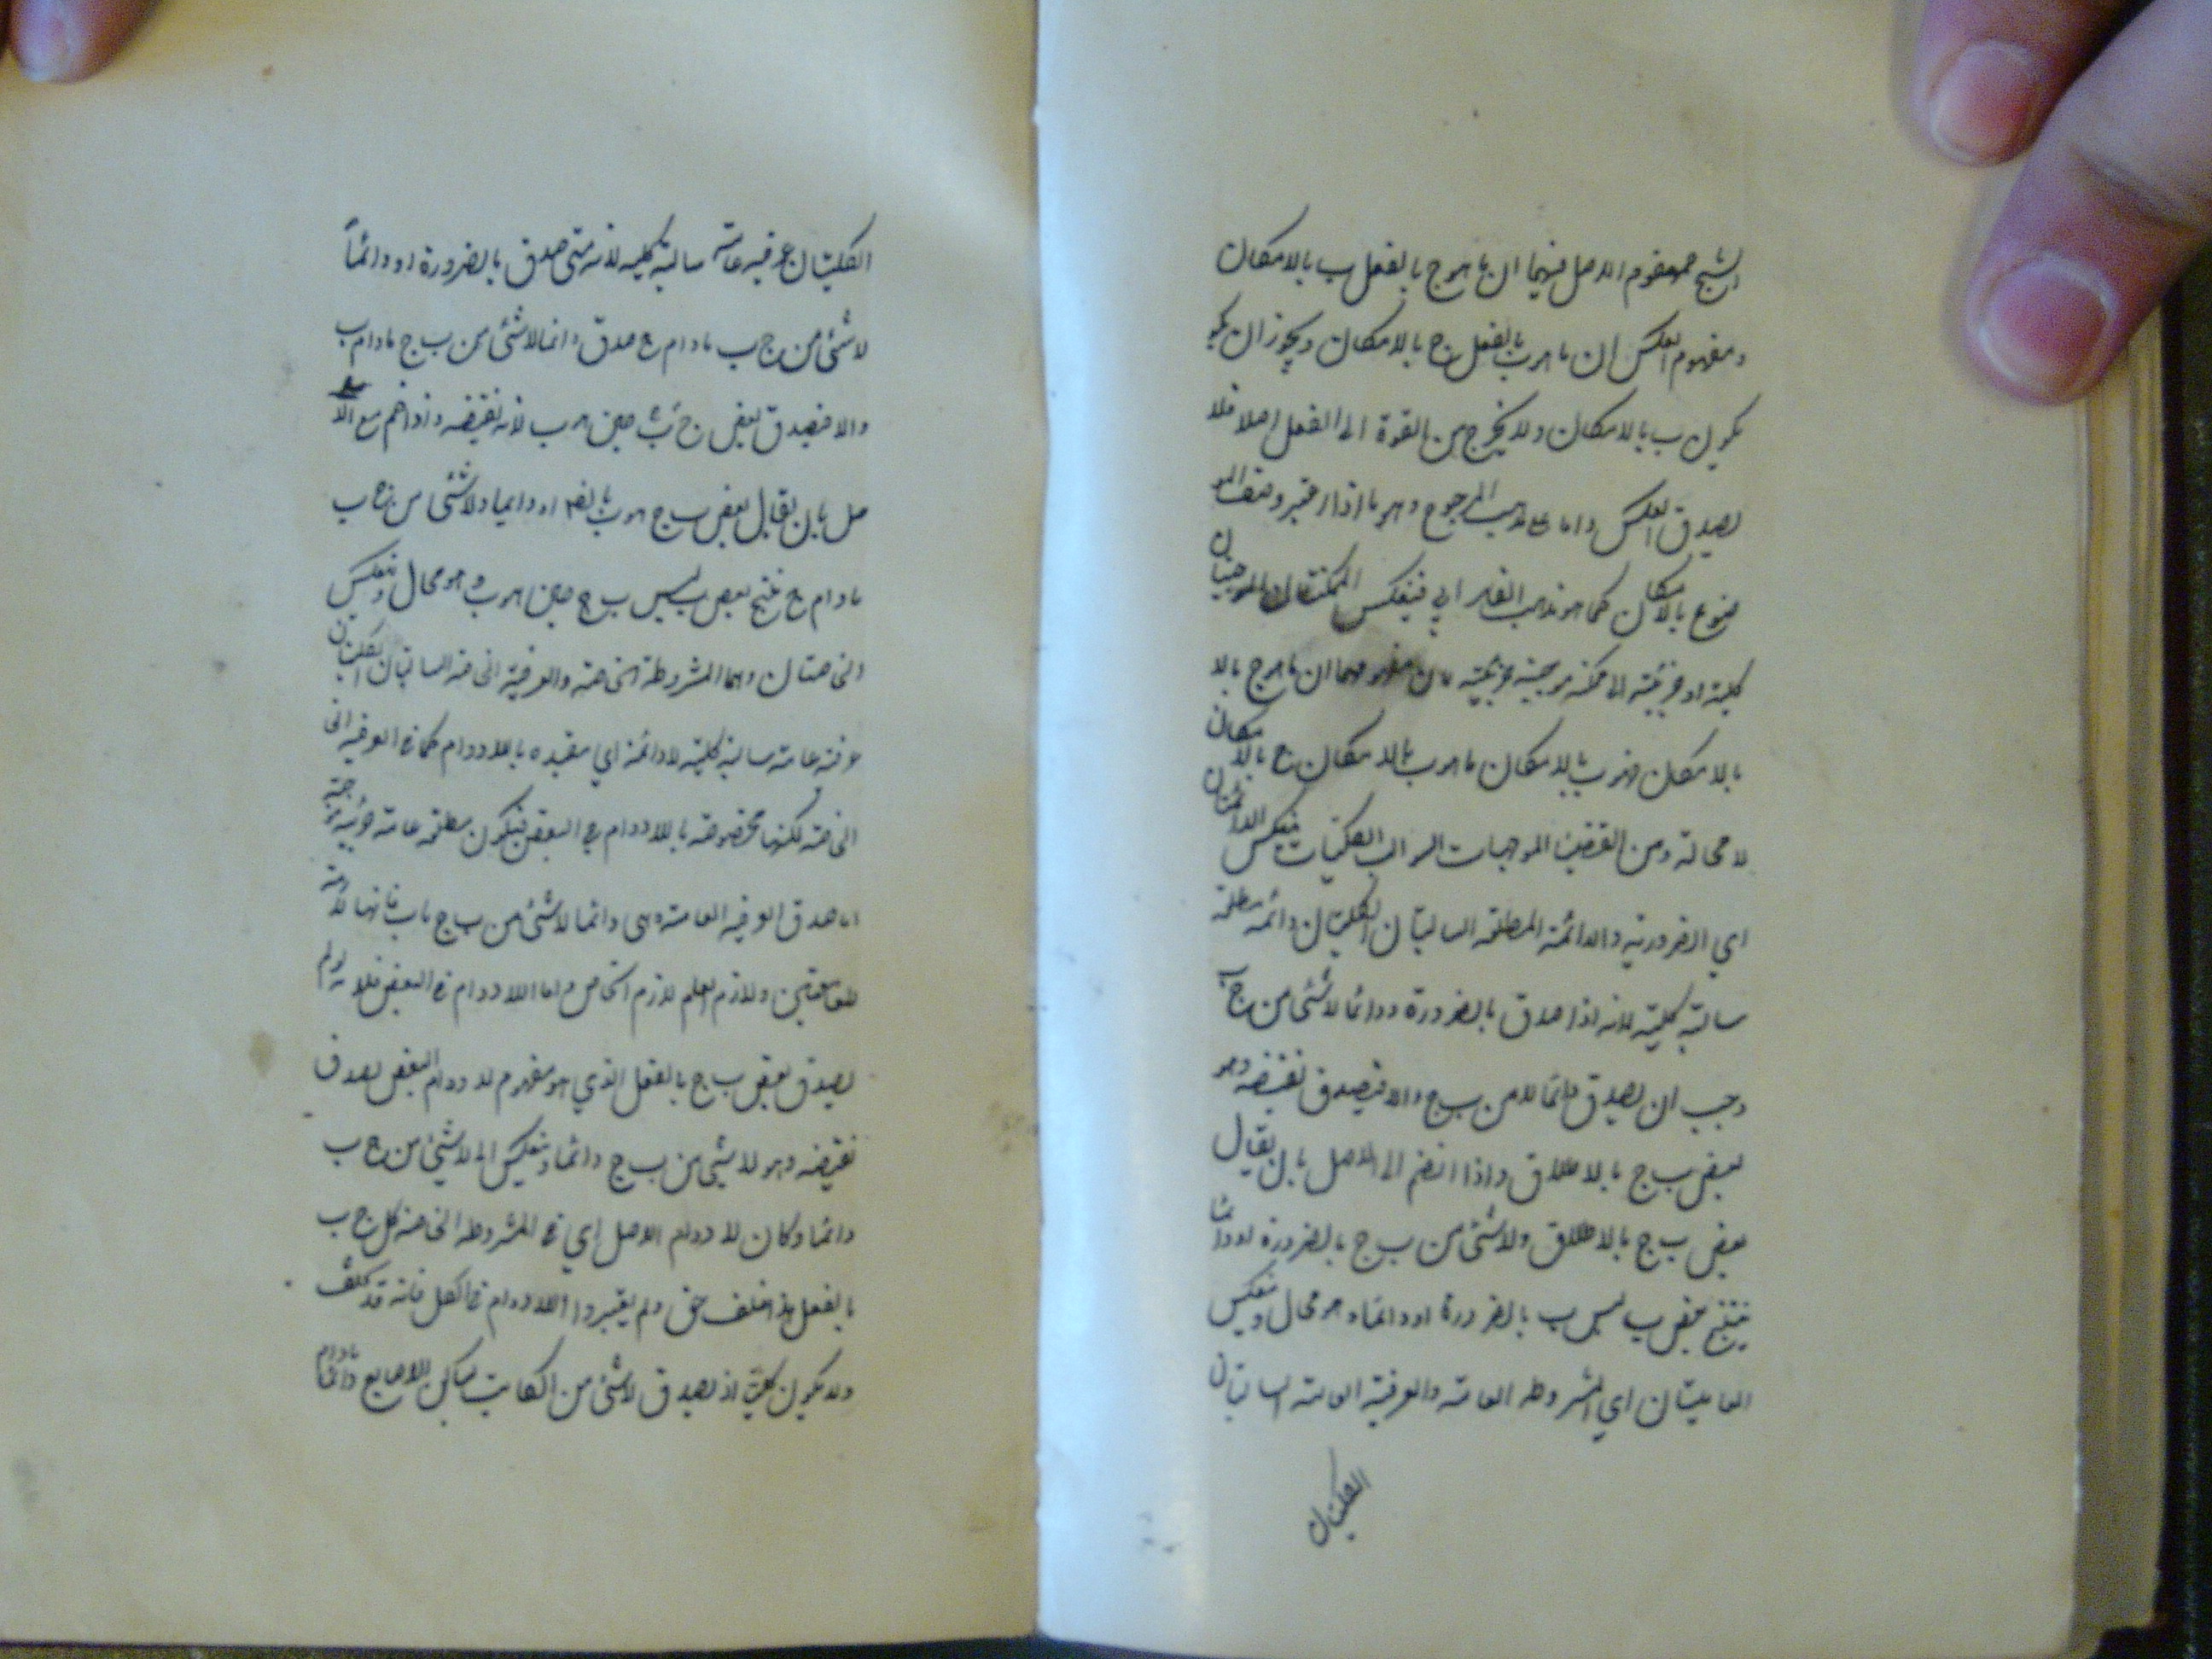 الشيخ مفهوم الاصل فيهما ان ما هو ج بالفعل ب بالامكان
ومفهوم العكس ان ما هو ب بالفعل ج بالامكان ويجوز ان يكو
يكون ب بالامكان ولا يخرج من القوة الى الفعل اصلا فلا
يصدق العكس واما على مذهب المرجوع وهو ما اذا اعتبر وصف المو
ضوع بالامكان كما هو مذهب الفارابي فينعكس الممكنتان الموجبتان
كلية او جزئية الى ممكنة موجبة جزئية لان مفهومهما ان ما هو ج بالا
بالامكان فهو ب بالامكان ما هو ب بالامكان ج بالامكان
لا محالة ومن القضايا الموجهات السوالب الكليات ينعكس الدائمتان
اي الضرورية والدائمة المطلقة السالبتان الكليتان دائمة مطلقة
سالبة كلية لانه اذا صدق بالضرورة ودائما لا شئ من ج ب
وجب ان يصدق دائما لا من ب ج والا فيصدق نقيضه وهو
بعض ب ج بالاطلاق واذا انضم الى الاصل بان يقال
بعض ب ج بالاطلاق ولا شئ من ب ج بالضرورة او دائما
ينتج بعض ب ليس ب بالضرورة او دائما وهو محال وينعكس
العاميتان اي المشروطه العامة والعرفية العامة السالبتان
الكليتان
الكليتان عرفيه عامة سالبة كليه لانه متى صدق بالضرورة او دائماً
لا شئ من ج ب مادام ج صدق دائما لا شئ من ب ج مادام ب
والا فيصدق بعض ج ب حين هو ب لانه نقيضه واذا ضم مع الا
صل بان يقال بعض ب ج هو ب بالضم او دايما ولا شئ من ج ب
مادام ج ينتج بعض ب ليس ب ج حين هو ب وهو محال وينعكس
الخاصتان وهما المشروطة الخاصة والعرفية الخاصة السالبتان الكليتان
عرفية عامة سالبة كلية لا دائمة اي مقيده باللادوام كما في العرفيه الخا
الخاصة لكنها مخصوصة باللادوام في البعض فيكون مطلقة عامة جزئيه موجبة
اما صدق العرفيه العامة وهى دائما لا شئ من ب ج ما ب فانها لازمة
للعامتين ولازم العام لازم الخاص واما اللادوام في البعض فلانه لو لم
يصدق بعض ب ج بالفعل الذي هو مفهوم لا دوام البعض لصدق
نقيضه وهو لا شئ من ب ج دائما وينعكس الى لا شئ من ج ب
دائما وكان لا دوام الاصل اي في المشروطه الخاصة كل ج ب
بالفعل هذا خلف حق ولم يعتبروا اللادوام في الكل فانه قد
ولا يكون كلية اذ يصدق لا شئ من الكاتب بساكن الاصابع مادام